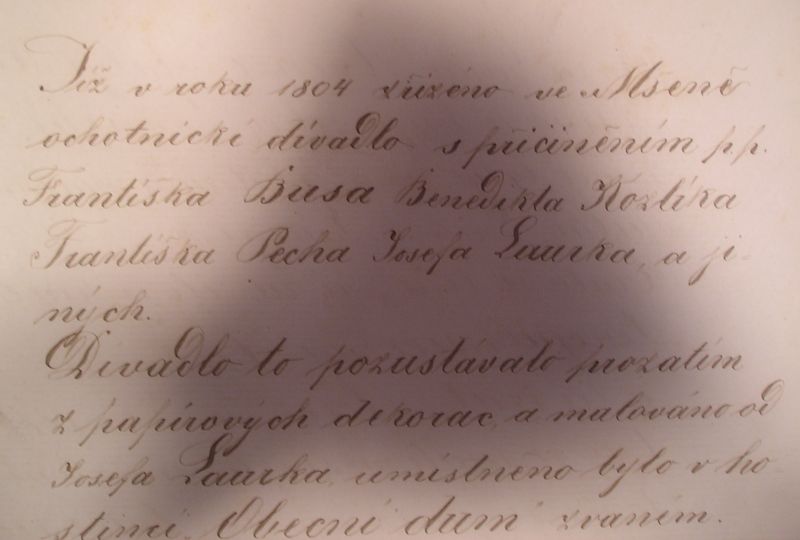 Již v roku 1804 zřízéno ve Mšeně
ochotnické divadlo s přičiněním p.p.
Františka Busa Benedikta Kozlíka
Františka Pecha Josefa Laurka, a ji-
ných.
Divadlo to pozustávalo prozatím
z papírových dekorac, a malováno od
Josefa Laurka, umístněno bylo v ho-
stinci „Obecní dům" zvaném.